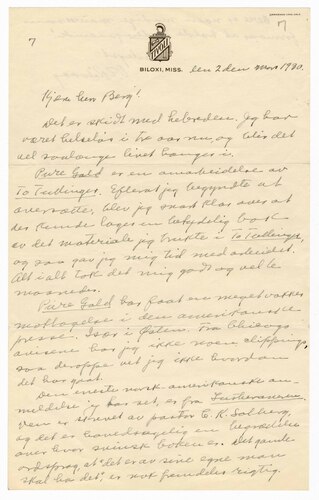 7
7
TIVOLI
BILOXI, MISS.
den 2den mars 1930.
Kjere herr Berg!
Det er skidt med helbreden. Jeg har
været helseløs i tre aar nu, og blir det
vel saalænge livet hanger i.
Pure Gold er en omarbeidelse av
To Tullinger. Efterat jeg begyndte at
oversætte, blev jeg snart klar over at
der kunde lages en betydelig bok
av det materiale jeg brukte i To Tullinger,
og saa gav jeg mig tid med arbeidet.
Alt i alt tok det mig godt og vel te
maaneder.
Pure Gold har faat en meget vakker
mottagelse i den amerikanske
presse. Især i Østen. Fra Chicago
avisene har jeg ikke noen clippings,
saa deroppe vet jeg ikke hvordan
det har gaat.
Den eneste norsk amerikanske an-
meldelse jeg har set, er fra Lutheraneren
den er skrevet av pastor C. K. Solberg,
og det er hovedsagelig en
over hvor boken er. Det gamle
ordsprog, at "det er av sine egne man
skal ha det", er nok fremdeles rigtig